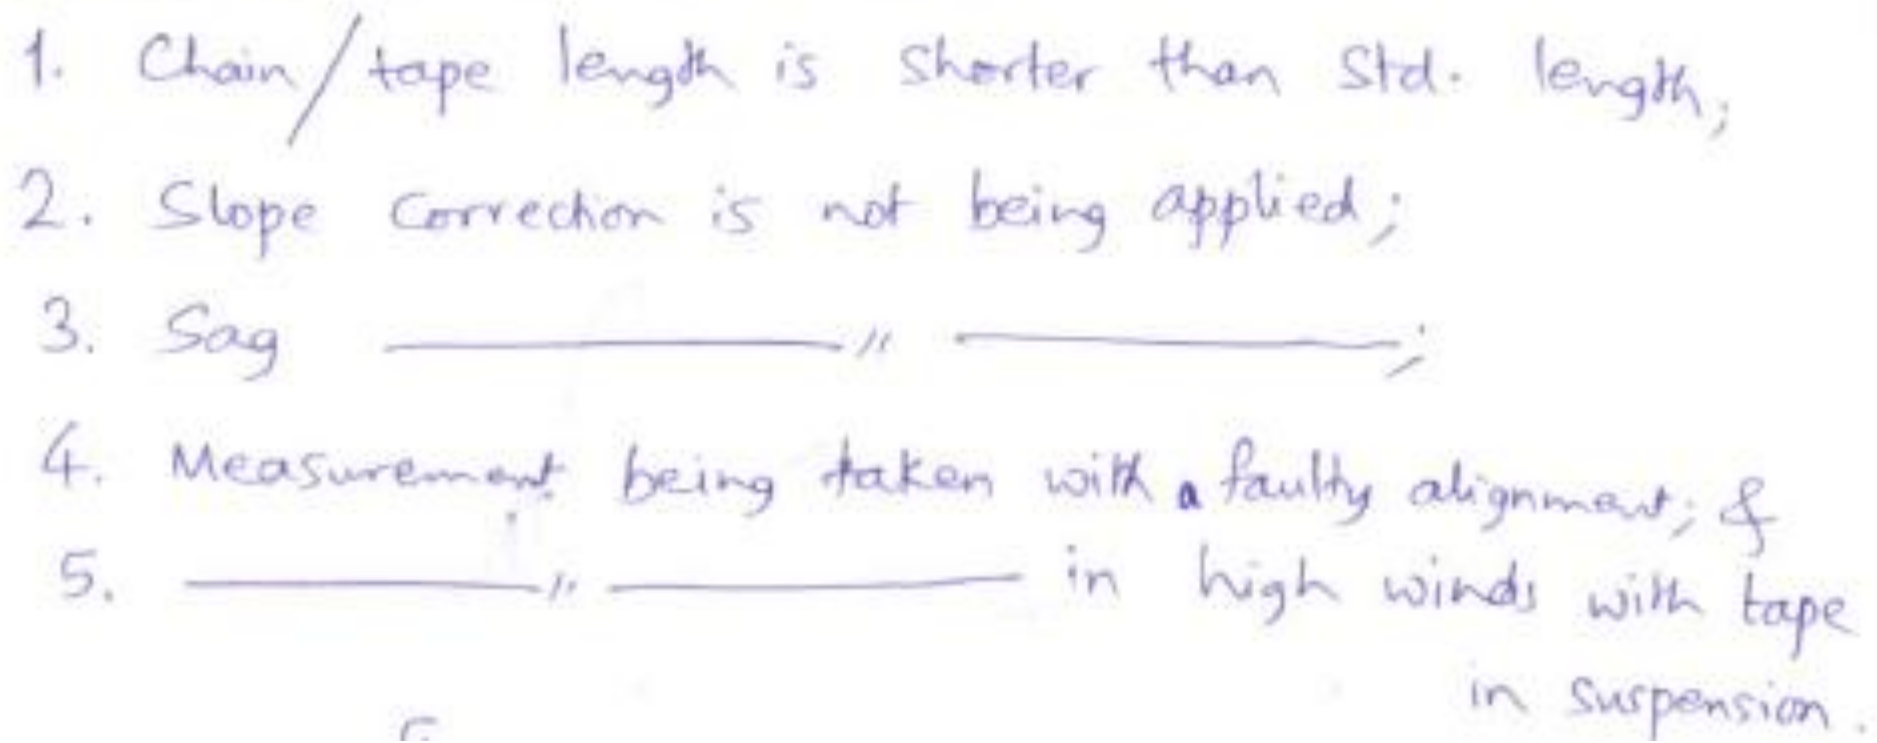 1. Chain/tape length is shorter than Std. length;
2. Slope correction is not being applied;
3. Sag ———— " ————;
4. Measurement being taken with a faulty alignment; &
5. ———— " ———— in high winds with tape
in suspension.